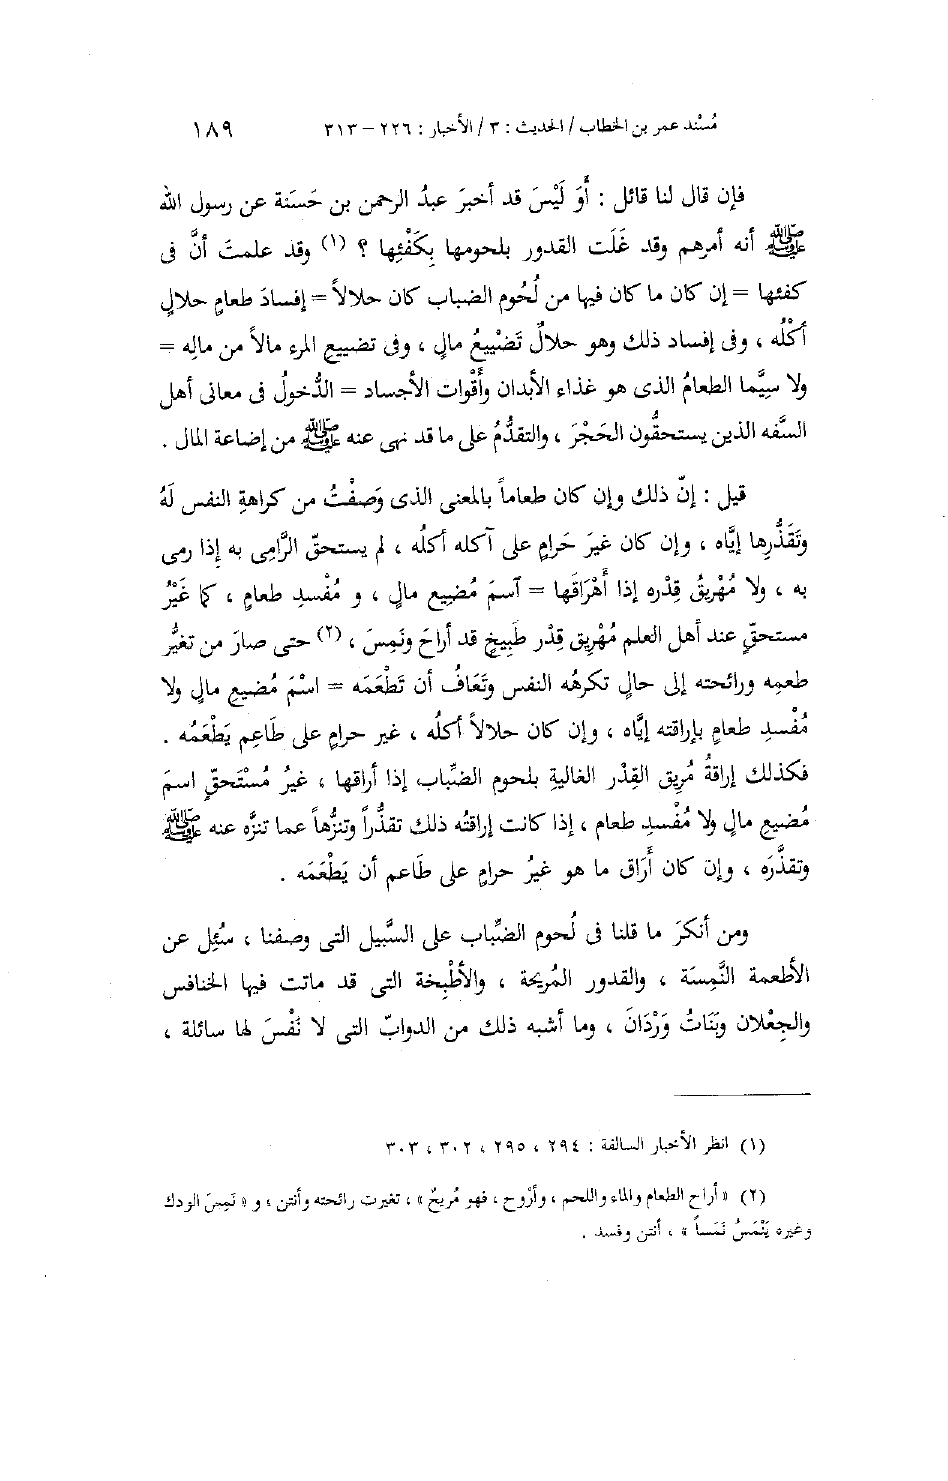 مُسْند عمر بن الخطاب / الحديث : ٣ / الأخبار : ٢٢٦ – ٣١٣ ١٨٩
فإن قال لنا قائل : أَوَ لَيْسَ قد أخبرَ عبدُ الرحمن بن حَسَنة عن رسول الله
ﷺ أنه أمرهم وقد غَلَت القدور بلحومها بِكَفْئِها ؟ (١) وقد علمتَ أنَّ فى
كفئها = إن كان ما كان فيها من لُحُوم الضباب كان حلالاً = إفسادَ طعام حلالٍ
أكْلُه ، وفى إفساد ذلك وهو حلالٌ تَضْيِيعُ مالٍ ، وفى تضييع المرء مالاً من مالِه =
ولا سِيَّما الطعامُ الذى هو غذاء الأبدان وأَقْوات الأجساد = الدُّخولُ فى معانى أهل
السَّفه الذين يستحقُّون الحَجْرَ ، والتقدُّمُ على ما قد نهى عنه ﷺ من إضاعة المال .
قيل : إنّ ذلك وإن كان طعاماً بالمعنى الذى وَصفْتُ من كراهةِ النفس لَهُ
وتَقَذُّرِها إيَّاه ، وإن كان غيرَ حَرامٍ على آكله أكلُه ، لم يستحقّ الرَّامِى به إذا رمى
به ، ولا مُهْرِيقُ قِدْره إذا أَهْرَاقَها = آسمَ مُضِيع مالٍ ، و مُفْسدِ طعام ، كما غَيْرُ
مستحقٍّ عند أهل العلم مُهْرِيق قِدْر طَبِيخٍ قد أراحَ ونَمِسَ ، (٢) حتى صارَ من تغيُّر
طعمِه ورائحته إلى حالٍ تكرهُه النفس وتَعَافُ أن تَطْعَمَه = اسْمَ مُضيعِ مالٍ ولا
مُفْسدِ طعامٍ بإراقته إيَّاه ، وإن كان حلالاً أكلُه ، غير حرامٍ على طَاعِم يَطْعَمُه .
فكذلك إراقةُ مُريق القِدْر الغاليةِ بلحوم الضِّباب إذا أراقها ، غيرُ مُسْتَحقٍّ اسمَ
مُضيعِ مالٍ ولا مُفْسدِ طعام ، إذا كانت إراقتُه ذلك تقذُّراً وتنزُّهاً عما تنزَّه عنه ﷺ
وتقذَّرَه ، وإن كان أَرَاق ما هو غيرُ حرامٍ على طَاعم أن يَطْعَمَه .
ومن أنكرَ ما قلنا فى لُحوم الضِّباب على السَّبيل التى وصفنا ، سُئِل عن
الأطعمة النَّمِسَة ، والقدور المُرِيحة ، والأطْبِخة التى قد ماتت فيها الخنافس
والجِعْلان وبَنَاتُ وَرْدَانَ ، وما أشبه ذلك من الدوابّ التى لا نَفْسَ لها سائلة ،
(١) انظر الأخبار السالفة : ٢٩٤ ، ٢٩٥ ، ٣٠٢ ، ٣٠٣
(٢) « أراح الطعام والماء واللحم ، وأرْوح ، فهو مُريحٌ » ، تغيرت رائحته وأنتن ، و « نَمِسَ الودك
وغيره يَنْمَسُ نَمَساً » ، أنتن وفسد .